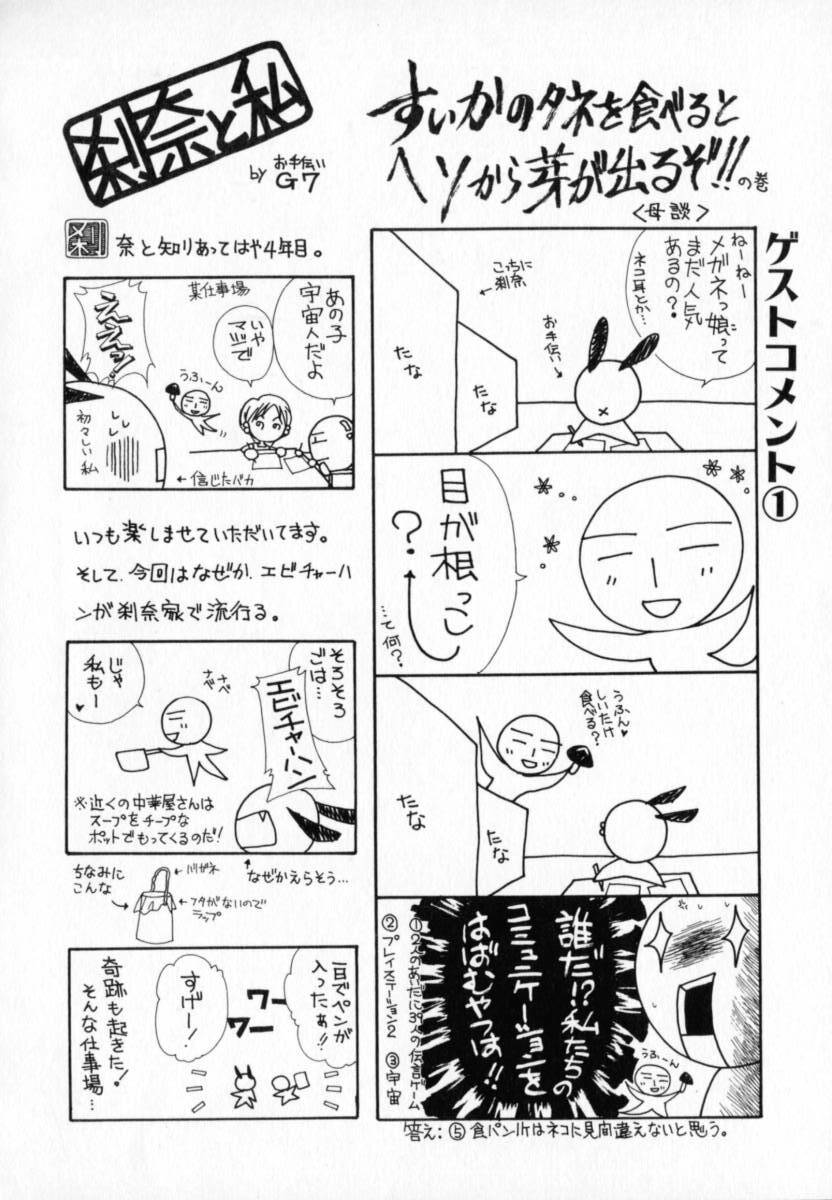 ゲストコメント①
すいかのタネを食べると
ヘソから芽が出るぞ!!の巻
<母談>
ねーねー
メガネっ娘って
まだ人気
あるの?
ネコ耳とか…
こちに
刹奈
お手伝い
たな
たな
目が根っこ
?
…て何?
うふん♥
しいたけ
食べる?
たな
たな
誰だ!?私たちの
コミュニケーションを
はばむやつは!!
うふぃーん
①2人のあいだに39人の伝言ゲーム
②プレイステーション2 ③宇宙
答え:⑤食パン1ケはネコに見間違えないと思う。
刹奈と私
by お手伝い
G7
刹奈と知りあってはや4年目。
某仕事場
あの子
宇宙人だよ
いや
マジで
うふぃーん
ええッ!
初々しい私
←信じたバカ
いつも楽しませていただいてます。
そして、今回はなぜか、エビチャーハ
ンが刹奈家で流行る。
そろそろ
ごは…
エビチャーハン
ナベナベ
じゃ
私もー
♥
※近くの中華屋さんは
スープをチープな
ポットでもってくるのだ!
なぜかえらそう…
ちなみに
こんな
ハリガネ
フタがないので
ラップ
一日でペンが
入ったぁ!!
すげー!
ワー
ワー
奇跡も起きた!
そんな仕事場…